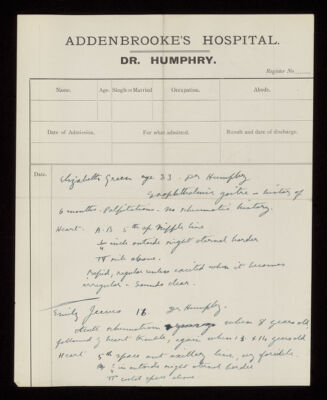 ADDENBROOKE'S HOSPITAL.
DR. HUMPHRY.
Register No
Name. Age. Single or Married Occupation. Abode.
Date of Admission. For what admitted. Result and date of discharge.
Date.
Elizabeth Green age 33. Dr Humphry
Exophthalmic goitre - history of
6 months. Palpitations. No rheumatic history.
Heart. A.B. 5th sp. nipple line
inch outside right sternal border
rib above.
Rapid, regular unless excited when it becomes
irregular - Sounds clear.
Emily 16. Dr Humphry.
Acute rheumatism when 8 years old
followed by heart trouble, again when 13 & 14 years old
Heart 5th space ant axillary line,
in outside right sternal border
space above